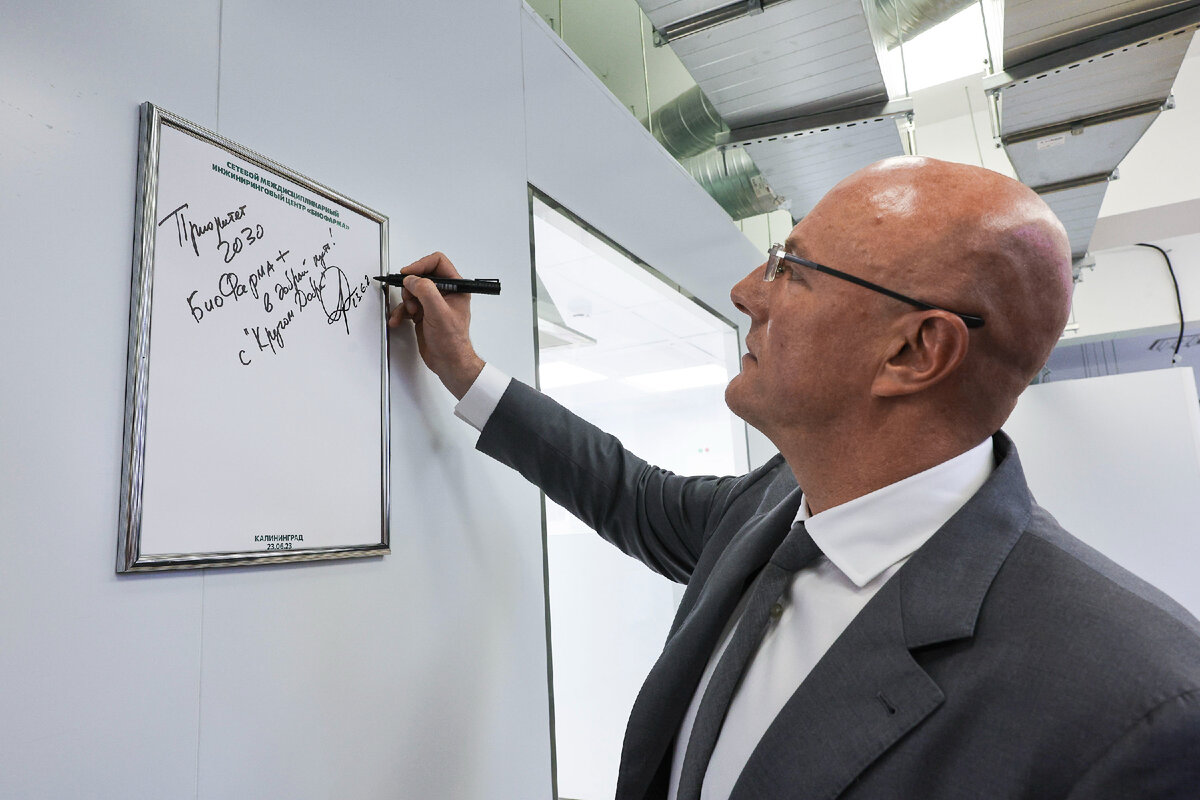 СЕТЕВОЙ МЕЖДИСЦИПЛИНАРНЫЙ
ИНЖИНИРИНГОВЫЙ ЦЕНТР «БИОФАРМА»
Приоритет
2030
БиоФарма+
в добрый путь!
с "Кругом Добра"
КАЛИНИНГРАД
23.06.23